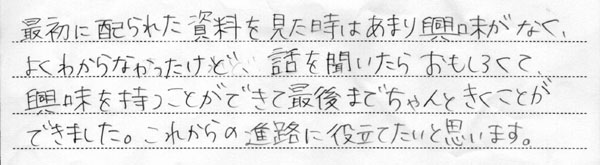 最初に配られた資料を見た時はあまり興味がなく、
よくわからなかったけど、話を聞いたらおもしろくて、
興味を持つことができて最後までちゃんときくことが
できました。これからの進路に役立てたいと思います。